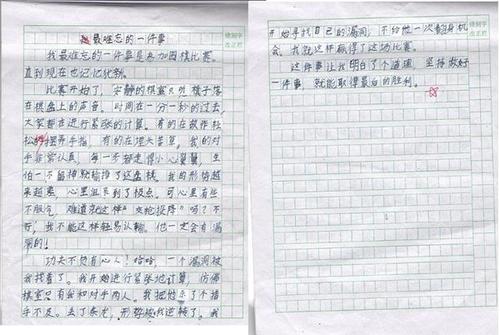 最难忘的一件事
我最难忘的一件事是参加围棋比赛。
直到现在也记忆犹新。
比赛开始了，安静的棋室只听棋子落
在棋盘上的声音。时间在一分一秒的过去，
大家都在进行紧张的计算。有的在故作轻
松的摆弄手指，有的在埋头苦草。我的对
手非常认真，每一步都走得小心翼翼，生
怕一不留神就输掉了这盘棋。我的形势越
来越塞，心里沮丧到了极点。可心里有些
不服气，难道就这样“交枪投降”吗？不
行，我不能这样轻易认输。他一定会有漏
洞的！
功夫不负有心人！哈哈，一个漏洞被
我找着了。我开始进行紧张地计算，仿佛
棋室只有我和对手两人。我把他杀了个措
手不及。去了多龙，形势被我逆转了。我
开始寻找自己的漏洞，不给他一次翻身机
会。我就这样赢得了这场比赛。
这件事让我明白了个道理：坚持做好
一件事，就能取得最后的胜利。